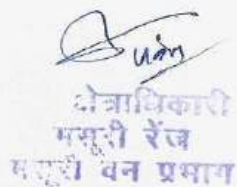 क्षेत्राधिकारी
मसूरी रेंज
मसूरी वन प्रभाग